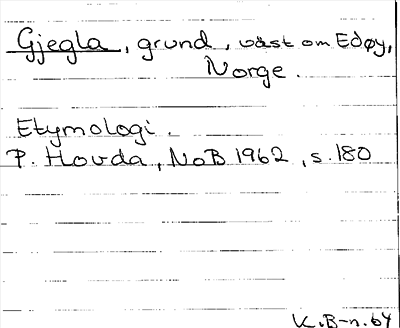 Gjegla, grund, väst om Edøy,
Norge.
Etymologi.
P. Hovda, NoB 1962, s. 180
K.B-n. 64